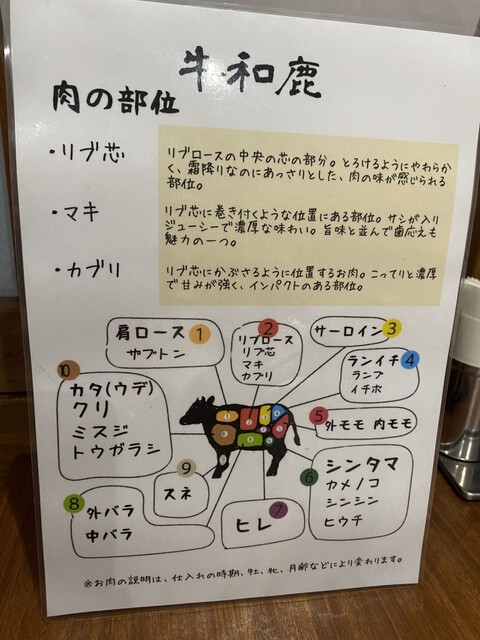 牛和鹿
肉の部位
・リブ芯
リブロースの中央の芯の部分。とろけるようにやわらか
く、霜降りなのにあっさりとした、肉の味が感じられる
部位。
・マキ
リブ芯に巻き付くような位置にある部位。サシが入り
ジューシーで濃厚な味わい。旨味と並んで歯応えも
魅力の一つ。
・カブリ
リブ芯にかぶさるように位置するお肉。こってりと濃厚
で甘みが強く、インパクトのある部位。
肩ロース 1
ザブトン
2
リブロース
リブ芯
マキ
カブリ
サーロイン 3
ランイチ 4
ランプ
イチボ
5 外モモ 内モモ
6
シンタマ
カメノコ
シンシン
ヒウチ
7
ヒレ
8
外バラ
中バラ
9
スネ
10
カタ(ウデ)
クリ
ミスジ
トウガラシ
※お肉の説明は、仕入れの時期、牡、牝、月齢などにより変わります。